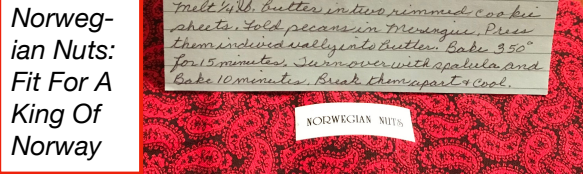 Norweg-
ian Nuts:
Fit For A
King Of
Norway
Melt 1/4 lb. Butter in two rimmed cookie
sheets. Fold pecans in Meringue, Press
them individually into Butter. Bake 350°
for 15 minutes. Turn over with spatula and
Bake 10 minutes. Break them apart & cool.
NORWEGIAN NUTS